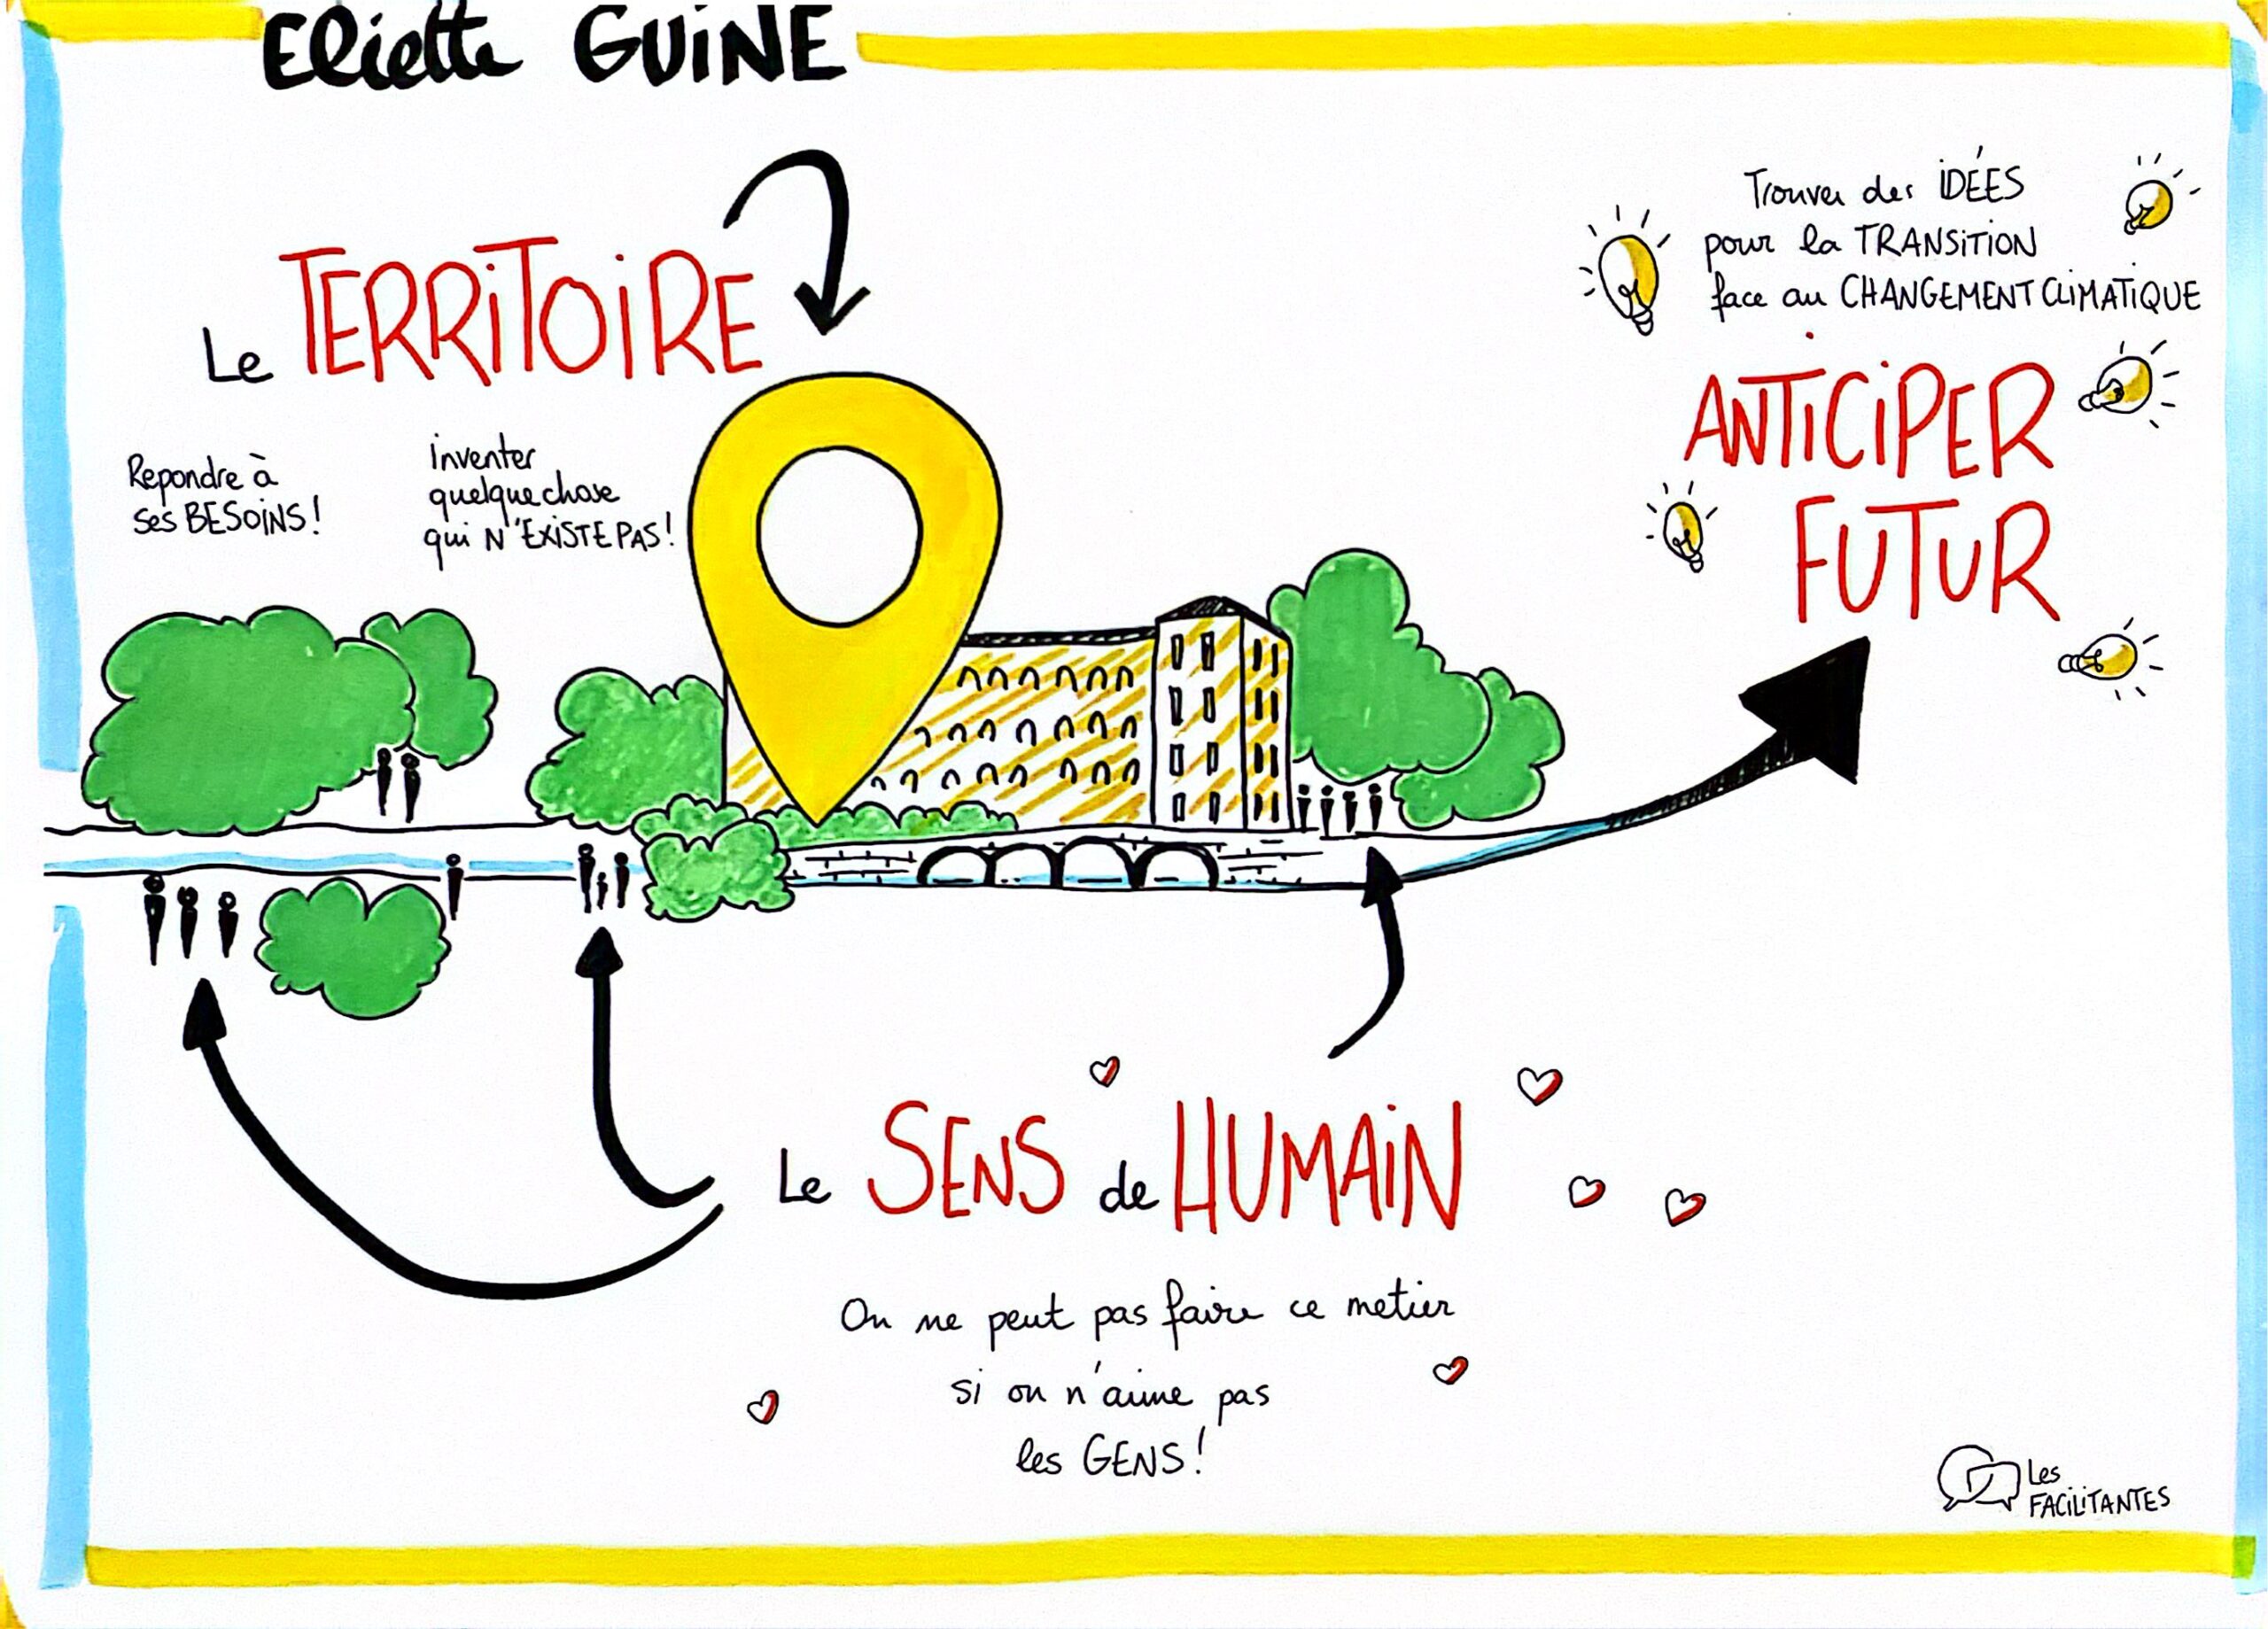 Eliette GUINE
Le TERRITOIRE
Repondre à
ses BESOINS!
inventer
quelque chose
qui N'EXISTE PAS!
Trouver des IDÉES
pour la TRANSITION
face au CHANGEMENT CLIMATIQUE
ANTICIPER
FUTUR
Le SENS de HUMAIN
On ne peut pas faire ce metier
si on n'aime pas
les GENS!
Les
FACILITANTES